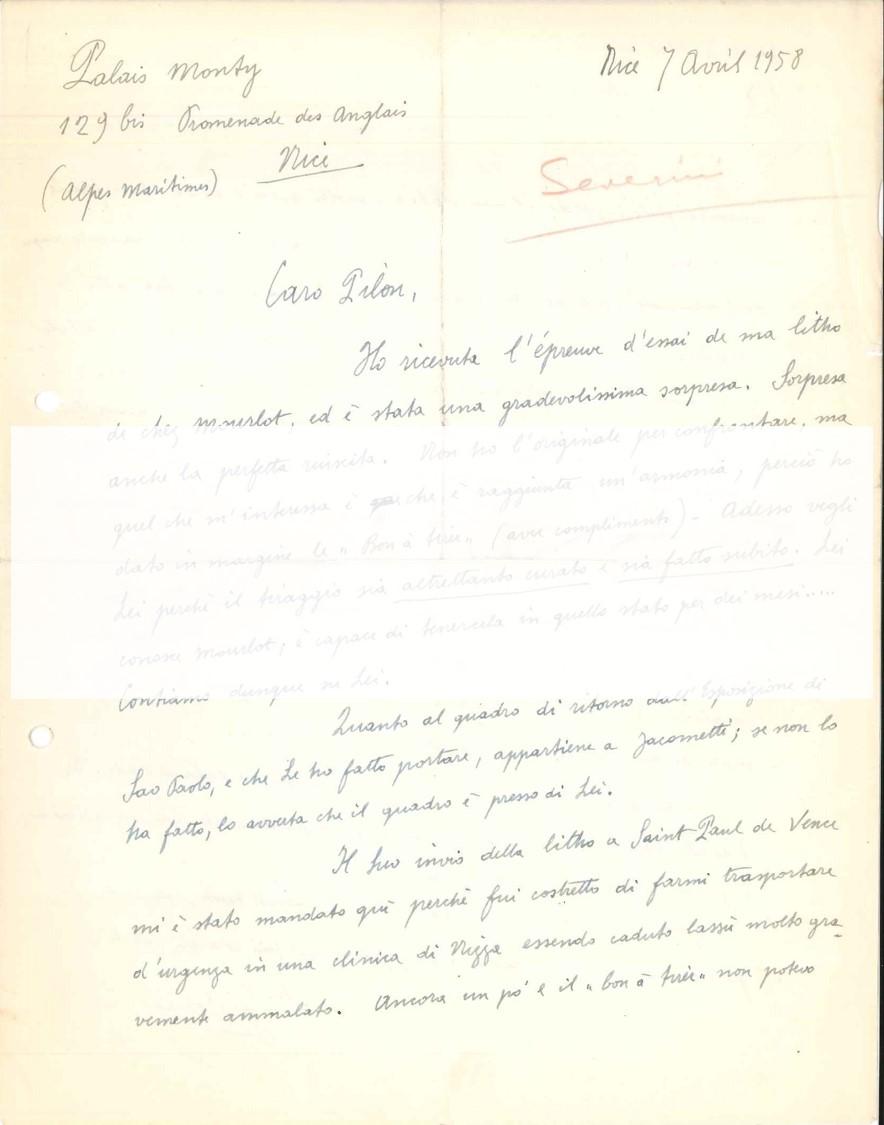 Palais Monty
Nice 7 Avril 1958
129 bis Promenade des Anglais
Nice
(Alpes Maritimes)
Severini
Caro Pilon,
Ho ricevuta l'épreuve d'essai de ma litho
de chez Mourlot, ed è stata una gradevolissima sorpresa. Sorpresa
anche la perfetta riuscita. Non ho l'originale per confrontare, ma
quel che m'interessa è che è raggiunta un'armonia, perciò ho
dato in margine le "Bon à tirer" (avec compliments) - Adesso vegli
Lei perchè il tiraggio sia altrettanto curato e sia fatto subito. Lei
conosce Mourlot; è capace di tenercela in quello stato per dei mesi.....
Contiamo dunque su Lei.
Quanto al quadro di ritorno dall'Esposizione di
Sao Paolo, e che Le ho fatto portare, appartiene a Jacometti; se non lo
ha fatto, lo avverta che il quadro è presso di Lei.
Il Suo invio della litho a Saint-Paul de Vence
mi è stato mandato quì perchè fui costretto di farmi trasportare
d'urgenza in una clinica di Nizza essendo caduto lassù molto gra-
vemente ammalato. Ancora un pò e il "bon à tirer" non potevo